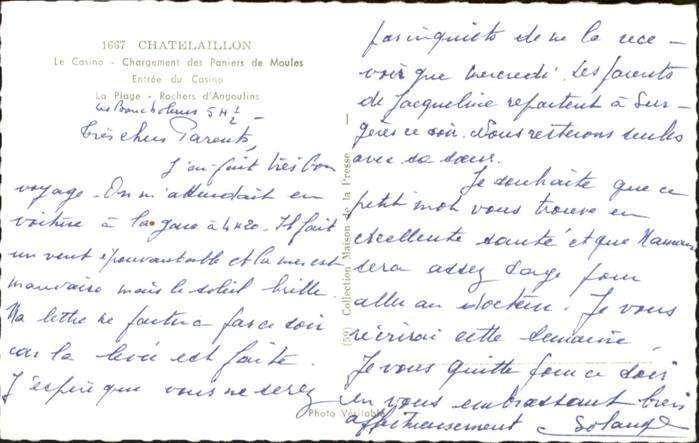 1667 CHATELAILLON
Le Casino - Chargement des Paniers de Moules
Entrée du Casino
La Plage - Rochers d'Angoulins
Les Boucholeurs 5H ½
Très chers Parents,
J'ai fait très bon
voyage. On m'attendait en
voiture à la gare à 4H20. Il fait
un vent épouvantable et la mer est
mauvaise mais le soleil brille.
Ma lettre ne partira pas ce soir
car la levée est faite.
J'espère que vous ne serez
Photo Véritable
(59) Collection Maison de la Presse
pas inquiets de ne la rece -
voir que mercredi. Les parents
de Jacqueline repartent à Sur-
gères ce soir. Nous resterons seules
avec sa sœur.
Je souhaite que ce
petit mot vous trouve en
excellente santé et que Maman
sera assez sage pour
aller au docteur. Je vous
récrirai cette semaine.
Je vous quitte pour ce soir
en vous embrassant bien
affectueusement Solange